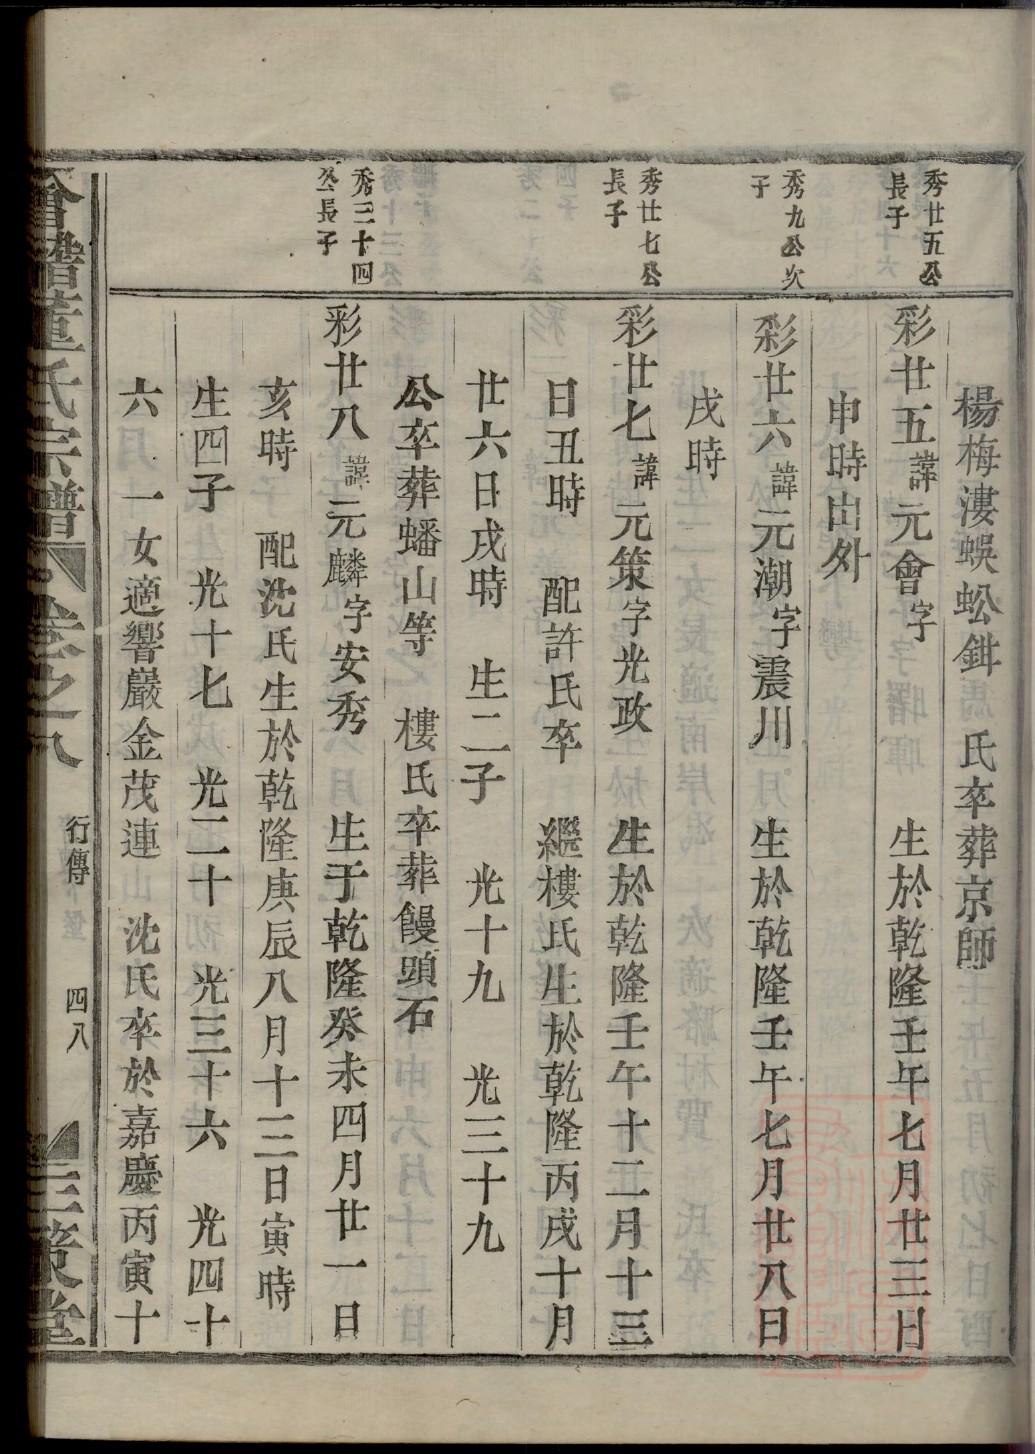 楊梅漊蜈蚣鉗　氏卒葬京師
秀廿五公
長子
彩廿五諱元會字　生於乾隆壬午七月廿三日
申時出外
秀九公次
子
彩廿六諱元潮字震川　生於乾隆壬午七月廿八日
戌時
秀廿七公
長子
彩廿七諱元策字光政　生於乾隆壬午十二月十三
日丑時　配許氏卒　繼樓氏生於乾隆丙戌十月
廿六日戌時　生二子　光十九　光三十九
公卒葬蟠山等　樓氏卒葬饅頭石
秀三十四
公長子
彩廿八諱元麟字安秀　生于乾隆癸未四月廿一日
亥時　配沈氏生於乾隆庚辰八月十二日寅時
生四子　光十七　光二十　光三十六　光四十
六　一女適響巖金茂連　沈氏卒於嘉慶丙寅十
會稽董氏宗譜　卷之八　行傳　四八　三策堂